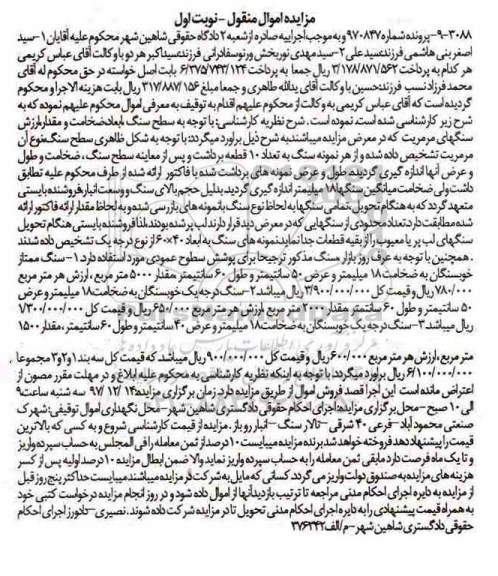 مزایده اموال منقول - نوبت اول
۳۰۸۸-۹- پرونده شماره ۹۷۰۸۴۷ و به موجب اجراییه صادره از شعبه ۲ دادگاه حقوقی شاهین شهر محکوم علیه آقایان ۱- سید
اصغر بنی هاشمی فرزند سید علی ۲- سید مهدی نوربخش ورنوسفادرانی فرزند سید اکبر هر دو با وکالت آقای عباس کریمی
هر کدام به پرداخت ۳/۱۷۸/۸۷۱/۵۶۲ ریال جمعا به پرداخت ۶/۳۷۵/۷۴۳/۱۲۴ بابت اصل خواسته در حق محکوم له آقای
محمد فرزاد نسب فرزند حسین با وکالت آقای یدالله طاهری و جمعا مبلغ ۳۱۷/۸۸۷/۱۵۶ ریال بابت هزینه الاجرا و محکوم
گردیده است که آقای عباس کریمی به وکالت از محکوم علیهم اقدام به توقیف به معرفی اموال محکوم علیهم نموده که به
شرح زیر کارشناسی شده است. نموده است. شرح نظریه کارشناسی: با توجه به سطح سنگ، ابعاد ضخامت و مقدار، ارزش
سنگهای مرمریت که در معرض مزایده میباشند به شرح ذیل برآورد میگردد: با توجه به شکل ظاهری سطح سنگ، نوع آن
مرمریت تشخیص داده شده و از هر نمونه سنگ به تعداد ۱۰ قطعه برداشت و پس از معاینه سطح سنگ، ضخامت و طول
و عرض آنها اندازه گیری گردید. طول و عرض نمونه های برداشت شده با فاکتور ارائه شده از طرف محکوم علیه تطابق
داشت ولی ضخامت میانگین سنگها ۱۸ میلیمتر اندازه گیری گردید. بدلیل حجم بالای سنگ و وسعت انبار فروشنده بایستی
متعهد گردد که به هنگام تحویل، تمامی سنگها به لحاظ نوع سنگ با نمونه های بازرسی شده و به لحاظ مقدار با ارائه فاکتور ارائه
شده مطابقت دارد. تعداد محدودی از سنگهایی که در معرض دید قرار دارند لب پر شده بودند، لذا فروشنده بایستی هنگام تحویل
سنگهای لب پر یا معیوب را از بقیه قطعات جدا نماید. نمونه های سنگ به ابعاد ۴۰×۶۰ از نوع درجه یک تشخیص داده شدند
. همچنین با توجه به عرف روز بازار سنگ مذکور ترجیحا برای پوشش سطوح عمودی مورد استفاده دارد: ۱- سنگ ممتاز
خوبسنگان به ضخامت ۱۸ میلیمتر و عرض ۵۰ سانتیمتر و طول ۶۰ سانتیمتر: مقدار ۵۰۰۰ متر مربع، ارزش هر متر مربع
۷۸۰/۰۰۰ ریال و قیمت کل ۳/۹۰۰/۰۰۰/۰۰۰ ریال میباشد ۲- سنگ درجه یک خوبسنگان به ضخامت ۱۸ میلیمتر و عرض
۵۰ سانتیمتر و طول ۶۰ سانتی متر، مقدار ۲۰۰۰ متر مربع، ارزش هر متر مربع ۶۵۰/۰۰۰ ریال و قیمت کل ۱/۳۰۰/۰۰۰/۰۰۰
ریال میباشد ۳- سنگ درجه یک خوبسنگان به ضخامت ۱۸ میلیمتر و عرض ۴۰ سانتیمتر و طول ۶۰ سانتیمتر، مقدار ۱۵۰۰
متر مربع، ارزش هر متر مربع ۶۰۰/۰۰۰ ریال و قیمت کل ۹۰۰/۰۰۰/۰۰۰ ریال میباشد که قیمت کل سه بند ۱ و ۲ و ۳ مجموعا
۶/۱۰۰/۰۰۰/۰۰۰ ریال برآورد میگردد. با توجه به اینکه نظریه کارشناسی به محکوم علیه ابلاغ و در مهلت مقرر مصون از
اعتراض مانده است این اجرا قصد فروش اموال از طریق مزایده دارد. زمان برگزاری مزایده: ۹۷/۱۲/۱۴ سه شنبه ساعت ۹
الی ۱۰ صبح - محل برگزاری مزایده: اجرای احکام حقوقی دادگستری شاهین شهر - محل نگهداری اموال توقیفی: شهرک
صنعتی محمود آباد - فرعی ۴۰ شرقی - تالار سنگ - انبار روباز. مزایده از قیمت کارشناسی شروع و به کسی که بالاترین
قیمت را پیشنهاد دهد فروخته خواهد شد برنده مزایده میبایست ۱۰ درصد از ثمن معامله را فی المجلس به حساب سپرده واریز
و تا یک ماه فرصت دارد مابقی ثمن معامله را به حساب سپرده واریز نماید والا ضمن ابطال مزایده ۱۰ درصد اولیه پس از کسر
هزینه های مزایده به صندوق دولت واریز می گردد. کسانی که مایل به شرکت در مزایده میباشند میبایست حداکثر پنج روز قبل
از مزایده به دایره اجرای احکام مدنی مراجعه تا ترتیب بازدید آنها از اموال داده شود و در روز انجام مزایده درخواست کتبی خود
به همراه قیمت پیشنهادی را به دایره اجرای احکام مدنی تحویل تا در مزایده شرکت داده شوند. نصیری - دادورز اجرای احکام
حقوقی دادگستری شاهین شهر - م/الف ۳۷۶۲۴۲